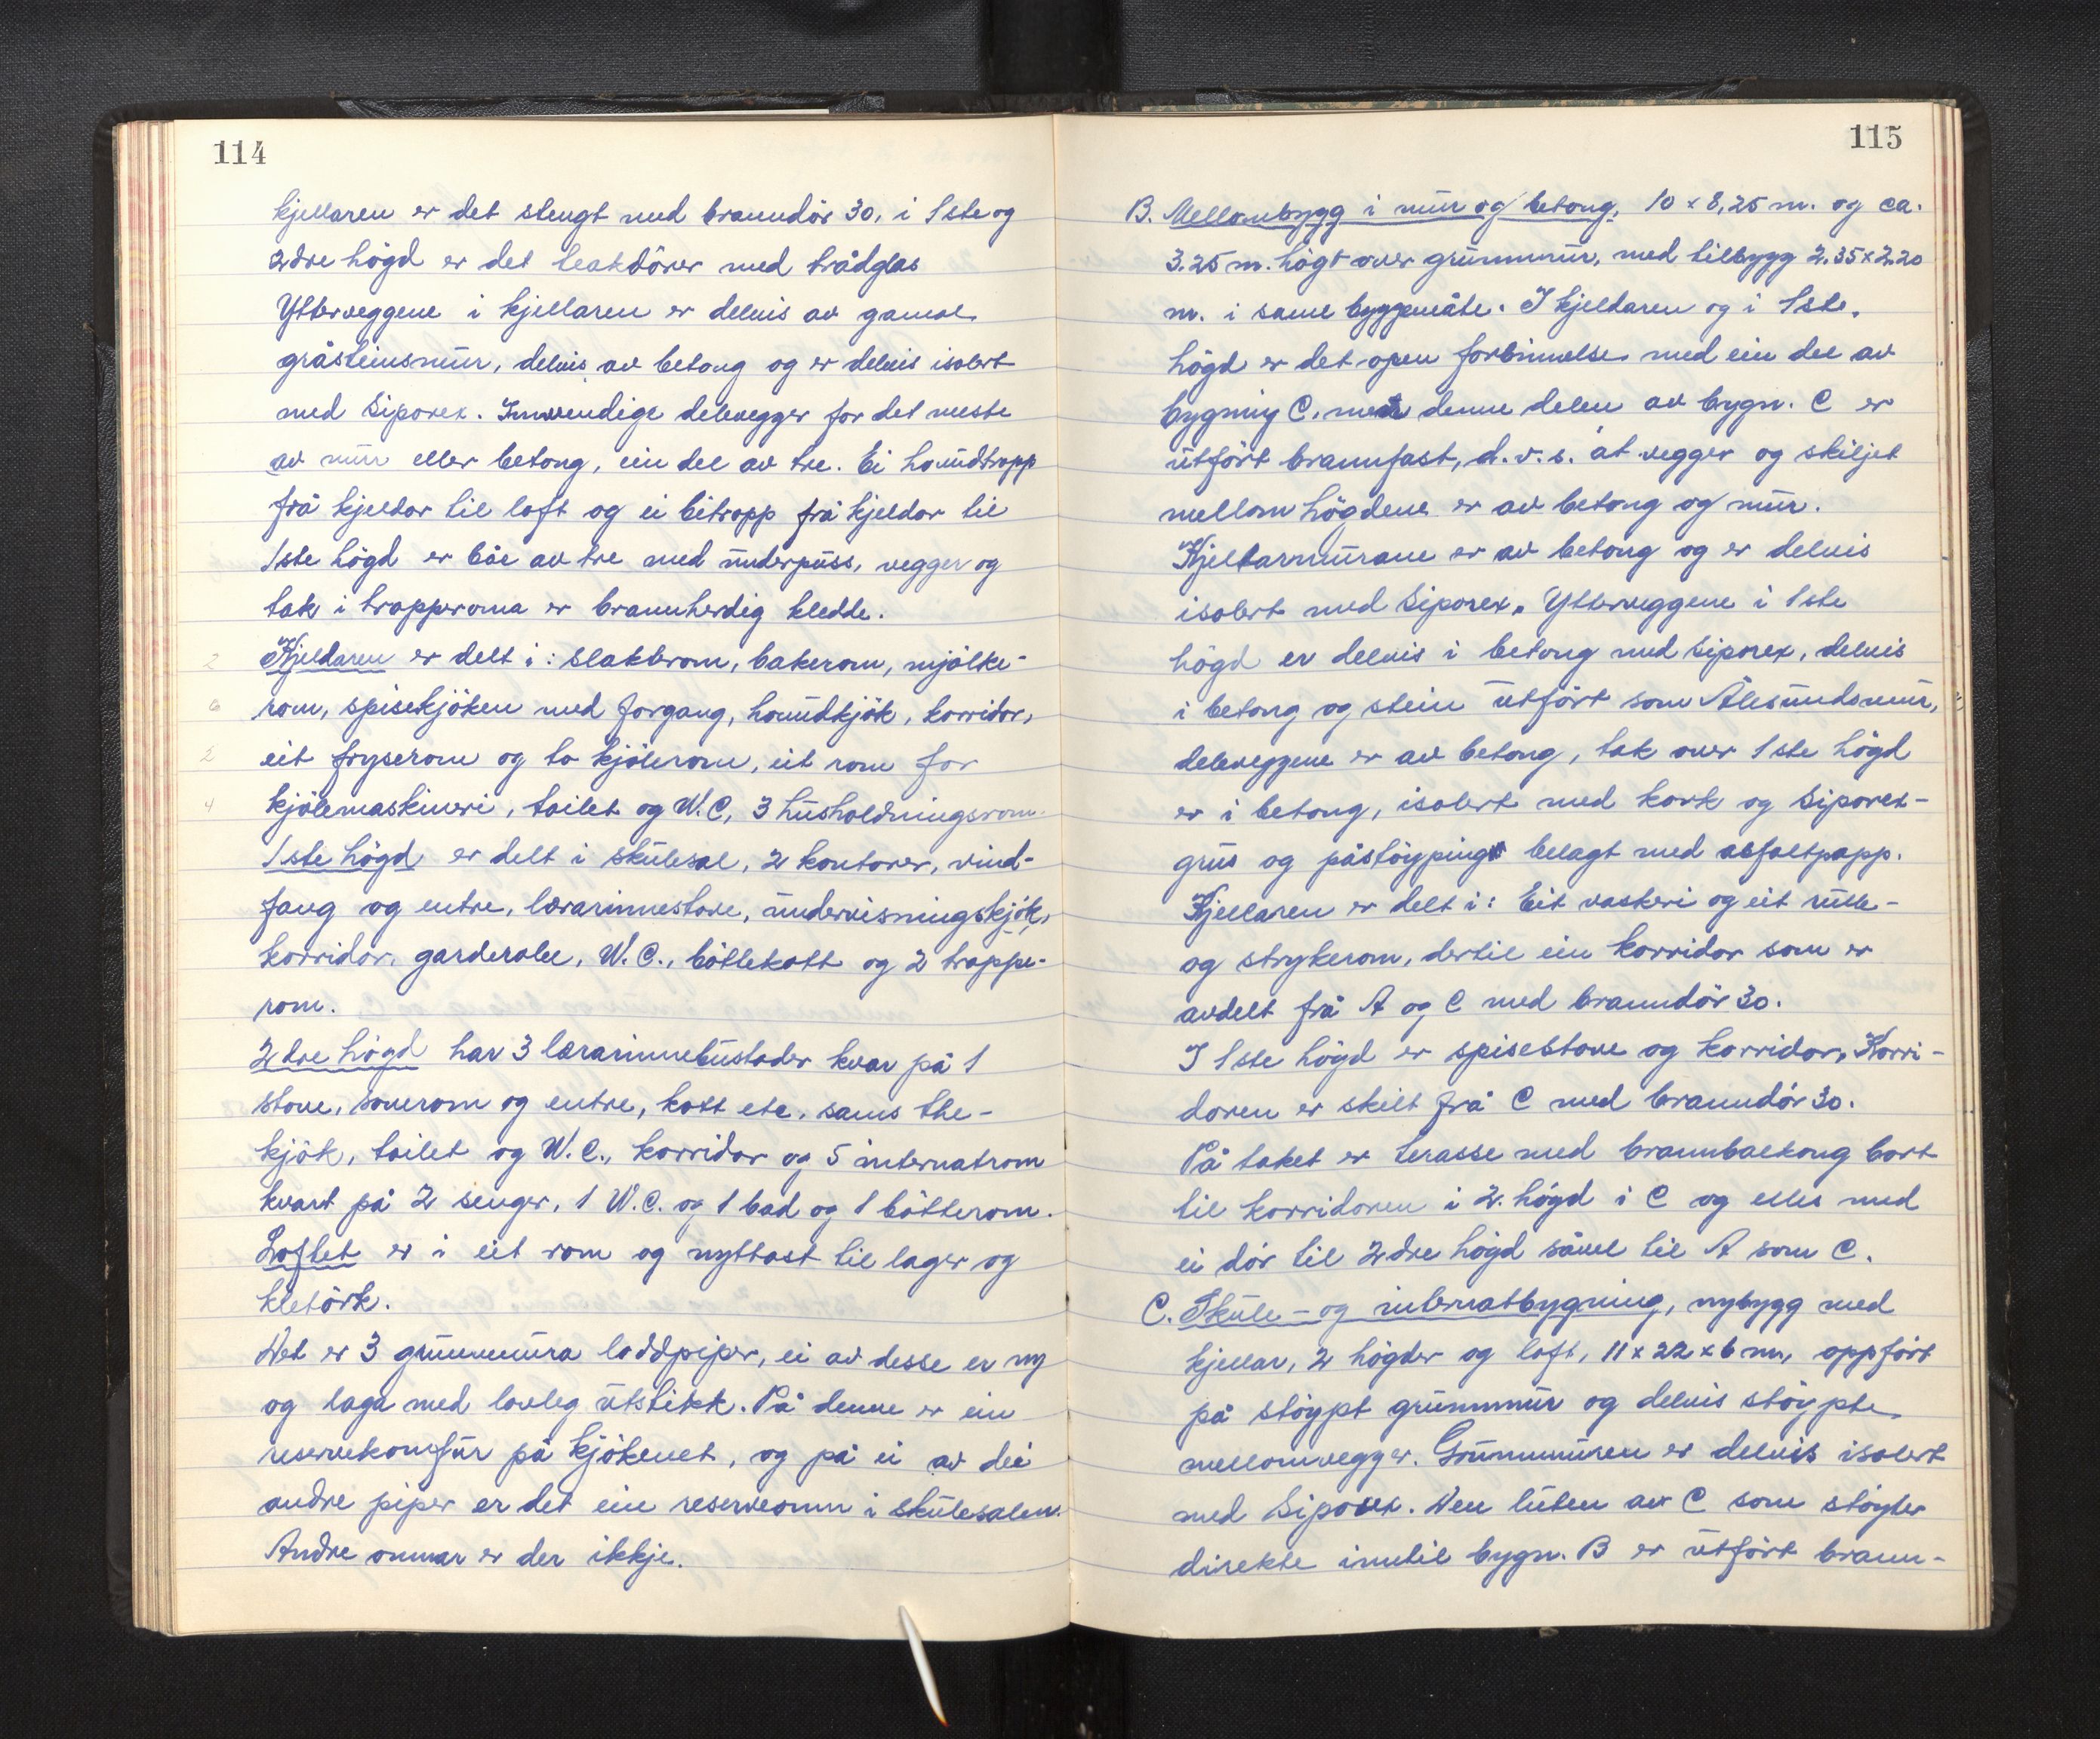 114
kjellaren er det stengt med branndör 30, i 1ste og
2dre högd er det teakdörer med trådglas
Ytterveggene i kjellaren er delvis av gamal
gråsteinsmur, delvis av betong og er delvis isolert
med Siporex. Innvendige delevegger for det meste
av mur eller betong, ein del av tre. Ei houndtrapp
frå kjeldar til loft og ei bitrapp frå kjeldar til
1ste högd er båe av tre med underpuss, vegger og
tak i trapperoma er brannherdig kledde.
2 Kjeldaren er delt i: slakterom, bakerom, mjölke-
6 rom, spisekjöken med forgang, houndkjök, korridor,
2 eit fryserom og to kjölerom, eit rom for
4 kjölemaskineri, toilet og W.C, 3 husholdningsrom.
1ste högd er delt i skulesal, 2 kontorer, vind-
fang og entre, lærarinnestove, undervisningskjök,
korridor, garderobe, W.C., böttekott og 2 trappe-
rom.
2dre högd har 3 lærarinnebustader kvar på 1
stove, soverom og entre, kott etc, sams the-
kjök, toilet og W.C., korridor og 5 internatrom
kvart på 2 senger, 1 W.C. og 1 bad og 1 bötterom.
Loftet er i eit rom og nyttast til lager og
kletörk.
Det er 3 grunnmura loddpiper, ei av desse er ny
og laga med lovleg utstikk. På denne er ein
reservekomfur på kjökenet, og på ei av dei
andre piper er det ein reserveomn i skulesalen.
Andre omnar er der ikkje.
115
B. Mellombygg i mur og betong, 10 x 8,25 m. og ca.
3.25 m. högt over grunnmur, med tilbygg 2.35 x 2.20
m. i same byggemåte. I kjeldaren og i 1ste.
högd er det open forbinnelse med ein del av
bygning C, men denne delen av bygn. C er
utfört brannfast, d.v.s. at vegger og skiljet
mellom högdene er av betong og mur.
Kjellarmurane er av betong og er delvis
isolert med Siporex. Ytterveggene i 1ste
högd er delvis i betong med Siporex, delvis
i betong og stein utfört som Ålesundsmur,
deleveggene er av betong, tak over 1ste högd
er i betong, isolert med kork og Siporex-
grus og påstöyping belagt med asfaltpapp.
Kjellaren er delt i: Eit vaskeri og eit rulle-
og strykerom, dertil ein korridor som er
avdelt frå A og C med branndör 30.
I 1ste högd er spisestove og korridor, Korri-
doren er skilt frå C med branndör 30.
På taket er terasse med brannbalkong bort
til korridoren i 2. högd i C og elles med
ei dör til 2dre högd såvel til A som C.
C. Skule- og internatbygning, nybygg med
kjellar, 2 högder og loft, 11 x 22 x 6 m, oppfört
på stöypt grunnmur og delvis stöypte
mellomvegger. Grunnmuren er delvis isolert
med Siporex. Den luten av C som stöyter
direkte inntil bygn. B er utfört brann-